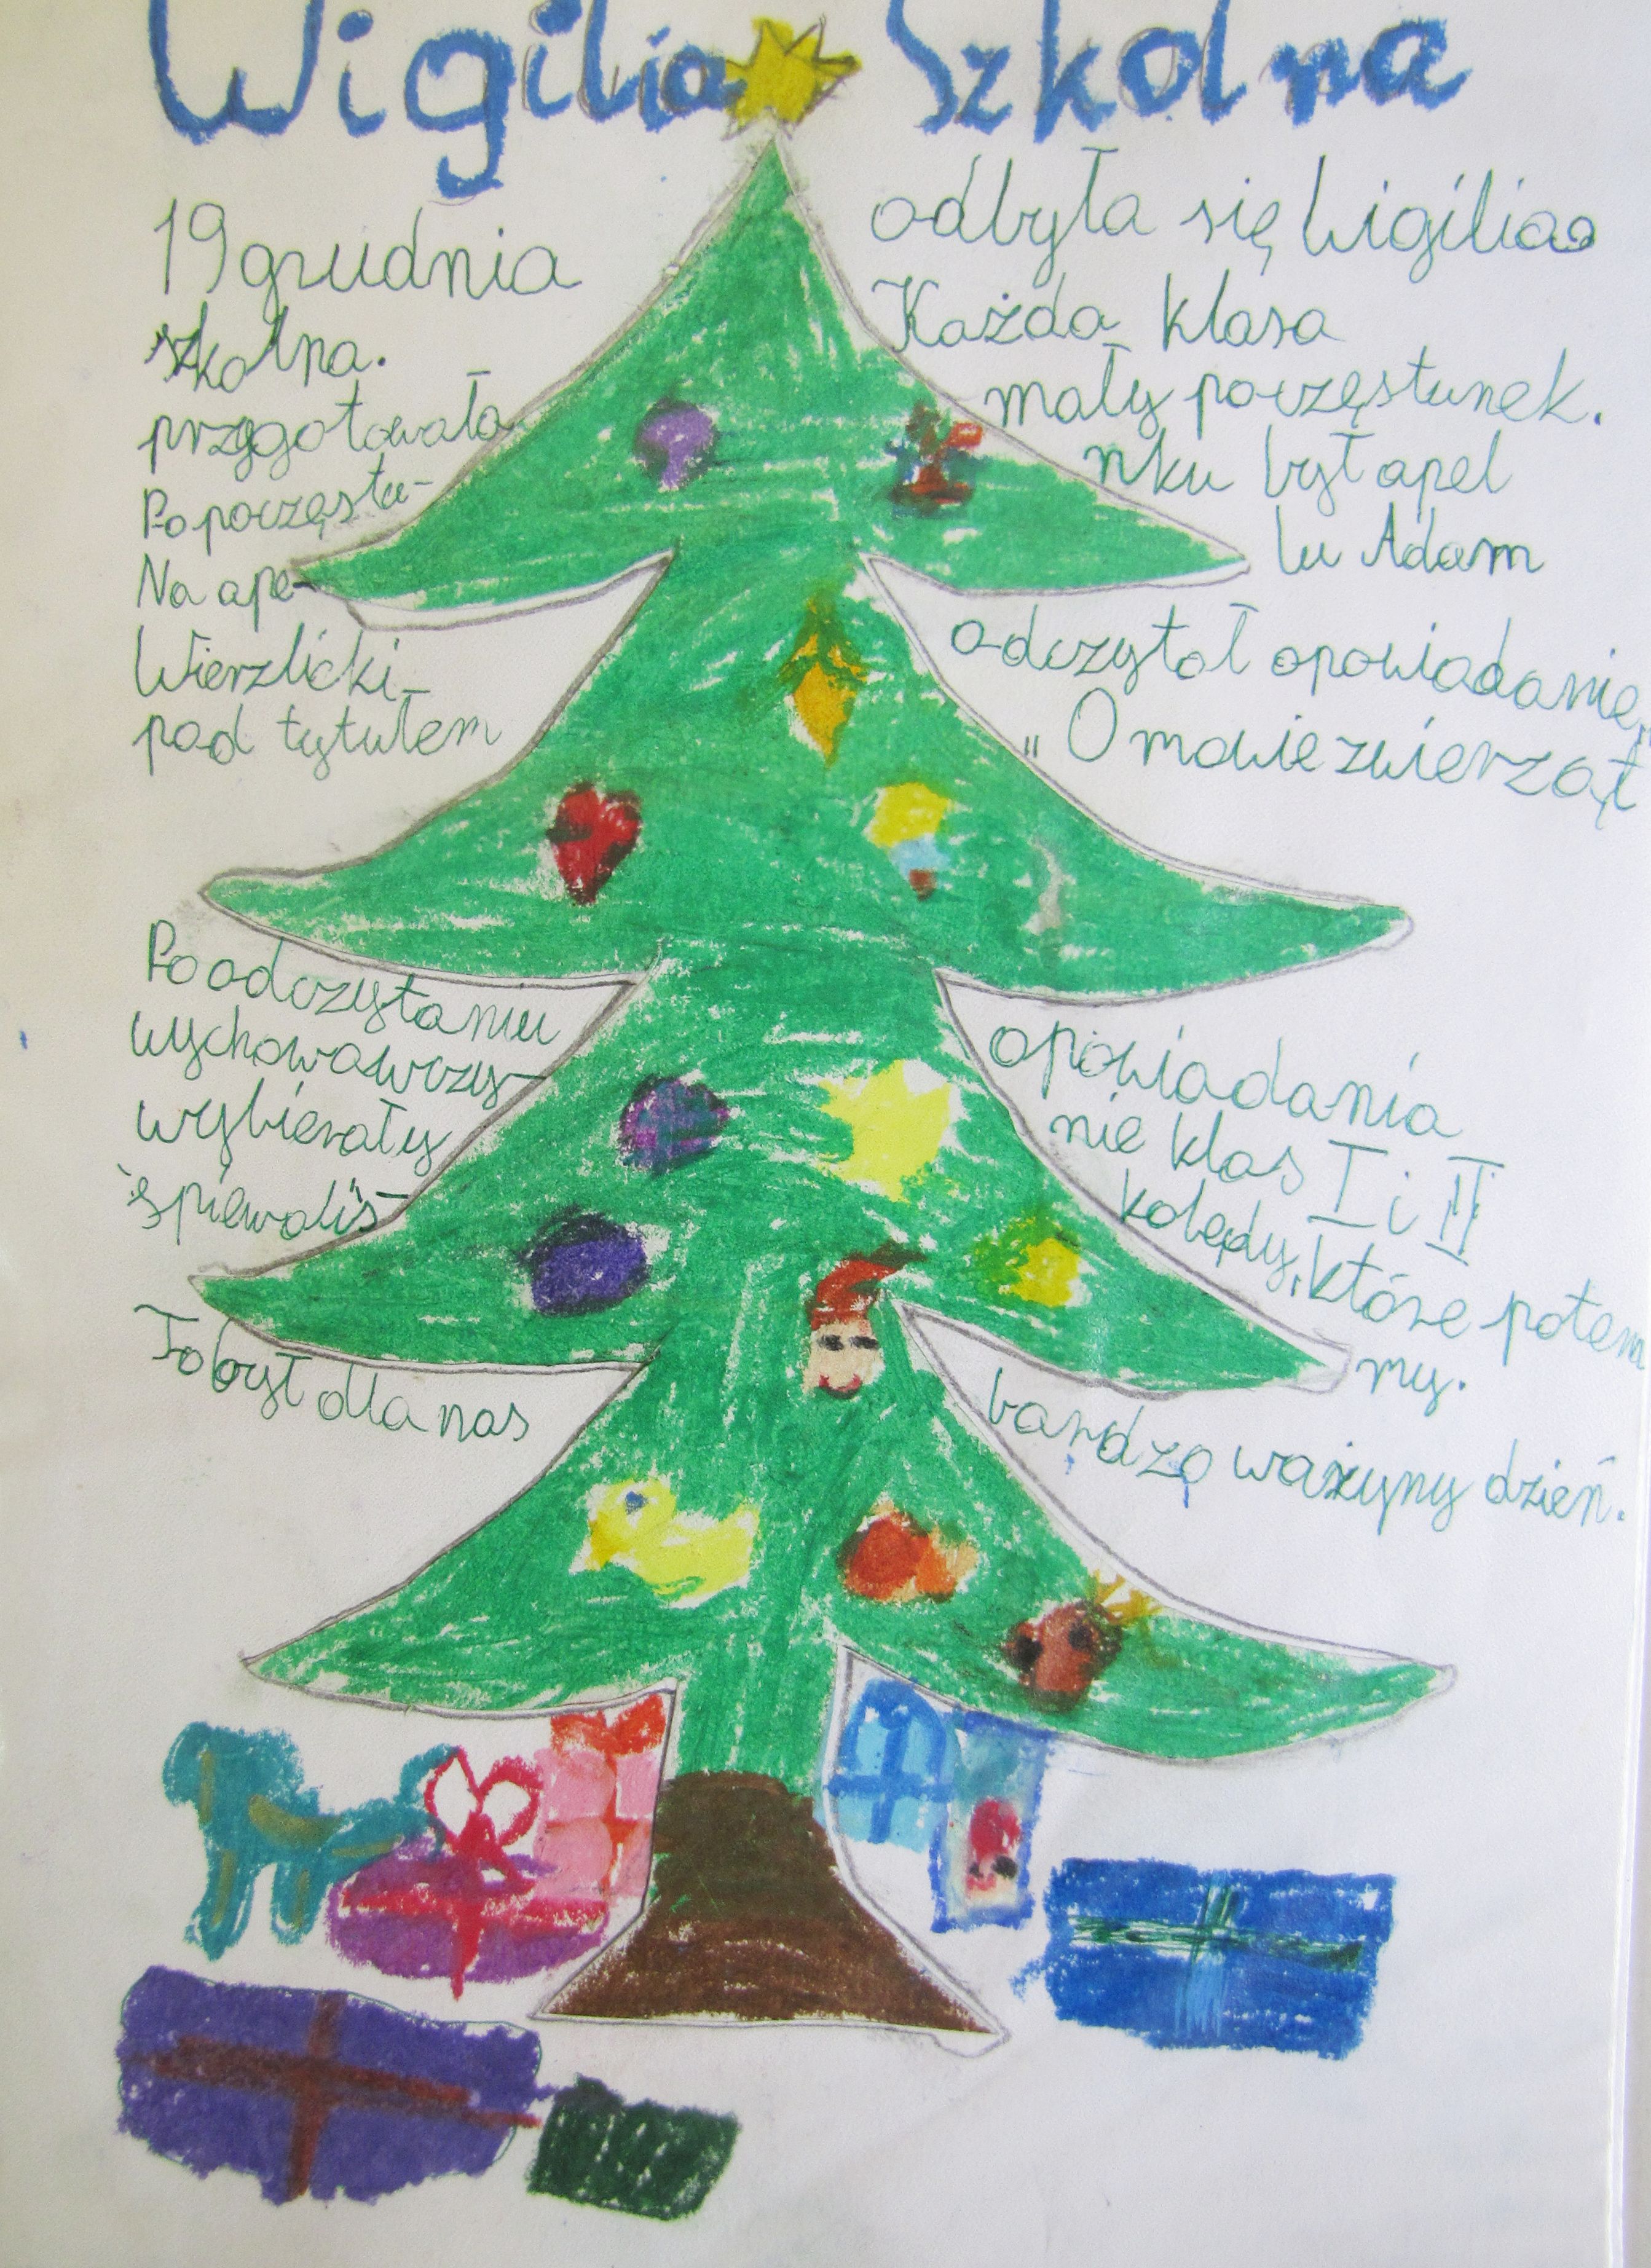 Wigilia Szkolna
19 grudnia odbyła się Wigilia
szkolna. Każda klasa
przygotowała mały poczęstunek.
Po poczęstu- nku był apel
Na ape- lu Adam
Wierzlicki odczytał opowiadanie,
pod tytułem „O mowie zwierząt"
Po odczytaniu opowiadania
wychowawczy- nie klas I i II
wybierały kolędy, które potem
śpiewaliś- my.
To był dla nas bardzo ważny dzień.